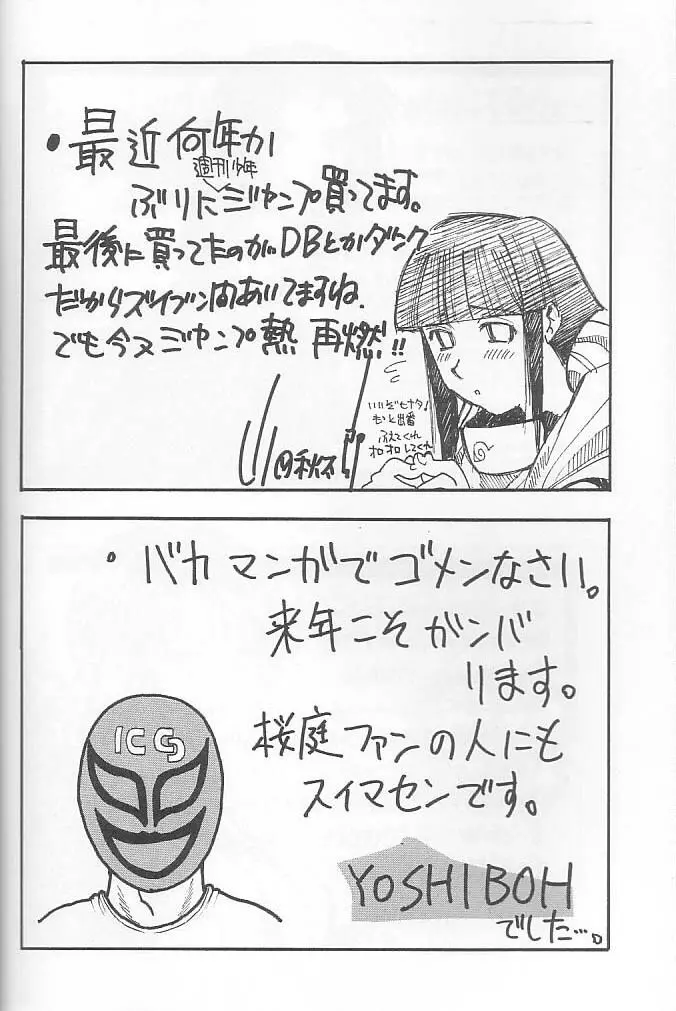 ・最近何年か
週刊少年
ぶりにジャンプ買ってます。
最後に買ってたのがDBとかダンク
だからズイブン間あいてますね.
でも今又ジャンプ熱 再燃!!
いいぞヒナタ!
もっと出番
ふえてくれ
オロオロしてくれ
・バカマンガでゴメンなさい。
来年こそガンバ
ります。
桜庭ファンの人にも
スイマセンです。
ICCD
YOSHIBOH
でした…。